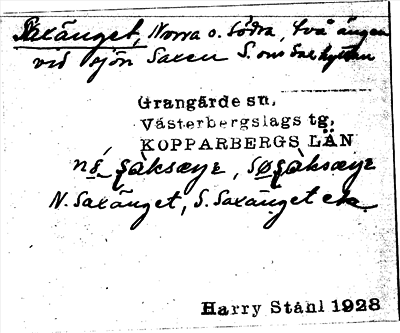 Saxänget, Norra o. Södra, två ängar
vid sjön Saxen S. om Saxhyttan
Grangärde sn,
Västerbergslags tg,
KOPPARBERGS LÄN
N. Saxänget, S. Saxänget ek.
Harry Ståhl 1928